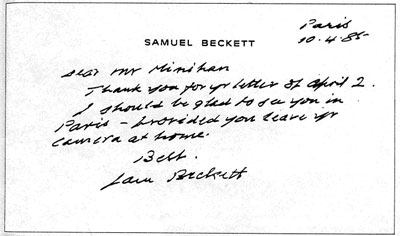 Paris
10.4.85
SAMUEL BECKETT
Dear Mr Minihan
Thank you for yr letter of April 2.
I should be glad to see you in
Paris - provided you leave yr
camera at home.
Best.
Sam Beckett